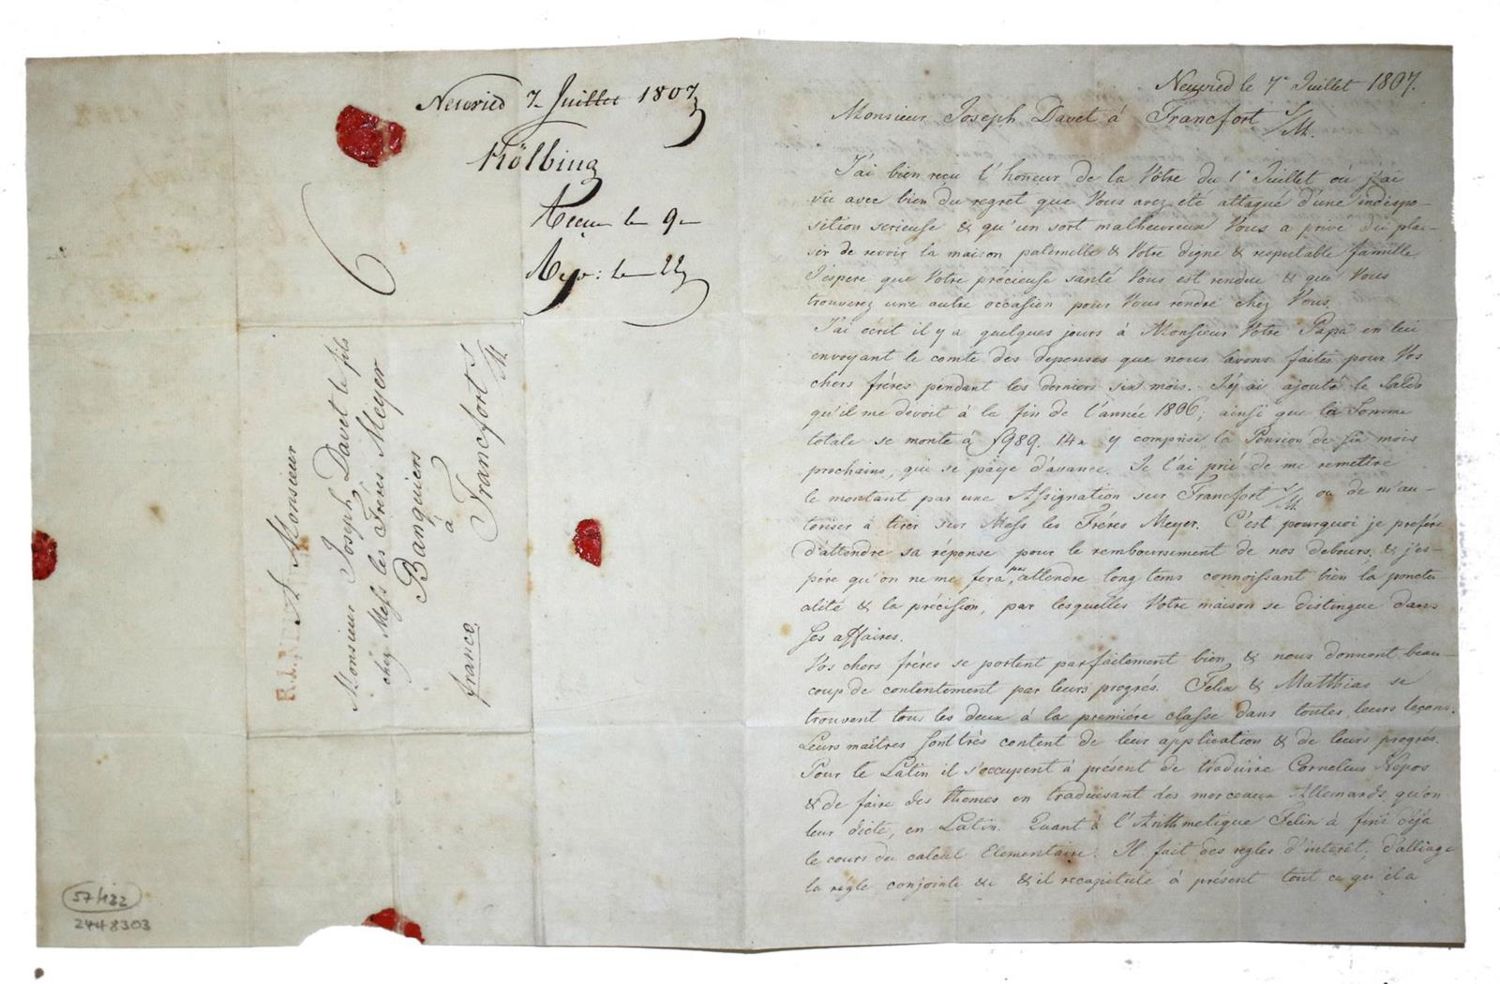 Neuwied 7 Juillet 1807
Kölbing
Reçue le 9
Rep: le 22
6
A Monsieur
Monsieur Joseph Davet le fils
chez Mess les Frères Meyer
Banquiers
à
Francfort s/M.
franco
57/132
2448303
Neuwied le 7e Juillet 1807.
Monsieur Joseph Davet à Francfort s/M.
J'ai bien reçu l'honneur de la Vôtre du 1r Juillet où j'ai
vu avec bien du regret que Vous avez été attaqué d'une indispo-
sition serieuse & qu'un sort malheureux Vous a privé du plai-
sir de revoir la maison paternelle & Votre digne & respectable famille
J'espere que Votre précieuse santé Vous est rendue & que Vous
trouverez une autre occasion pour Vous rendre chez Vous.
J'ai écrit il y a quelques jours à Monsieur Votre Papa en lui
envoyant le comte des depenses que nous avons faites pour Vos
chers frères pendant les derniers six mois. J'y ai ajouté le Saldo
qu'il me devoit à la fin de l'année 1806; ainsi que la Somme
totale se monte à f 989. 14 y comprise la Pension de six mois
prochains, qui se paye d'avance. Je l'ai prié de me remettre
le montant par une Assignation sur Francfort s/M. ou de m'au-
toriser à tirer sur Mess les Frères Meyer. C'est pourquoi je prefère
d'attendre sa réponse pour le remboursement de nos debours, & j'es-
père qu'on ne me fera pas attendre long tems connoissant bien la ponctu-
alité & la précision, par lesquelles Votre maison se distingue dans
ses affaires.
Vos chers frères se portent parfaitement bien & nous donnent beau-
coup de contentement par leurs progrés. Felix & Matthias se
trouvent tous les deux à la première classe dans toutes leurs leçons.
Leurs maîtres sont très content de leur application & de leurs progrés.
Pour le Latin il s'occupent à présent de traduire Cornelius Nepos
& de faire des themes en traduisant des morceaux Allemands, qu'on
leur dicte, en Latin. Quant à l'Arithmetique Felix à fini déjà
le cours du calcul Elementaire. Il fait des regles d'interêt, d'alliage
la règle conjointe &c & il recapitule à présent tout ce qu'il a